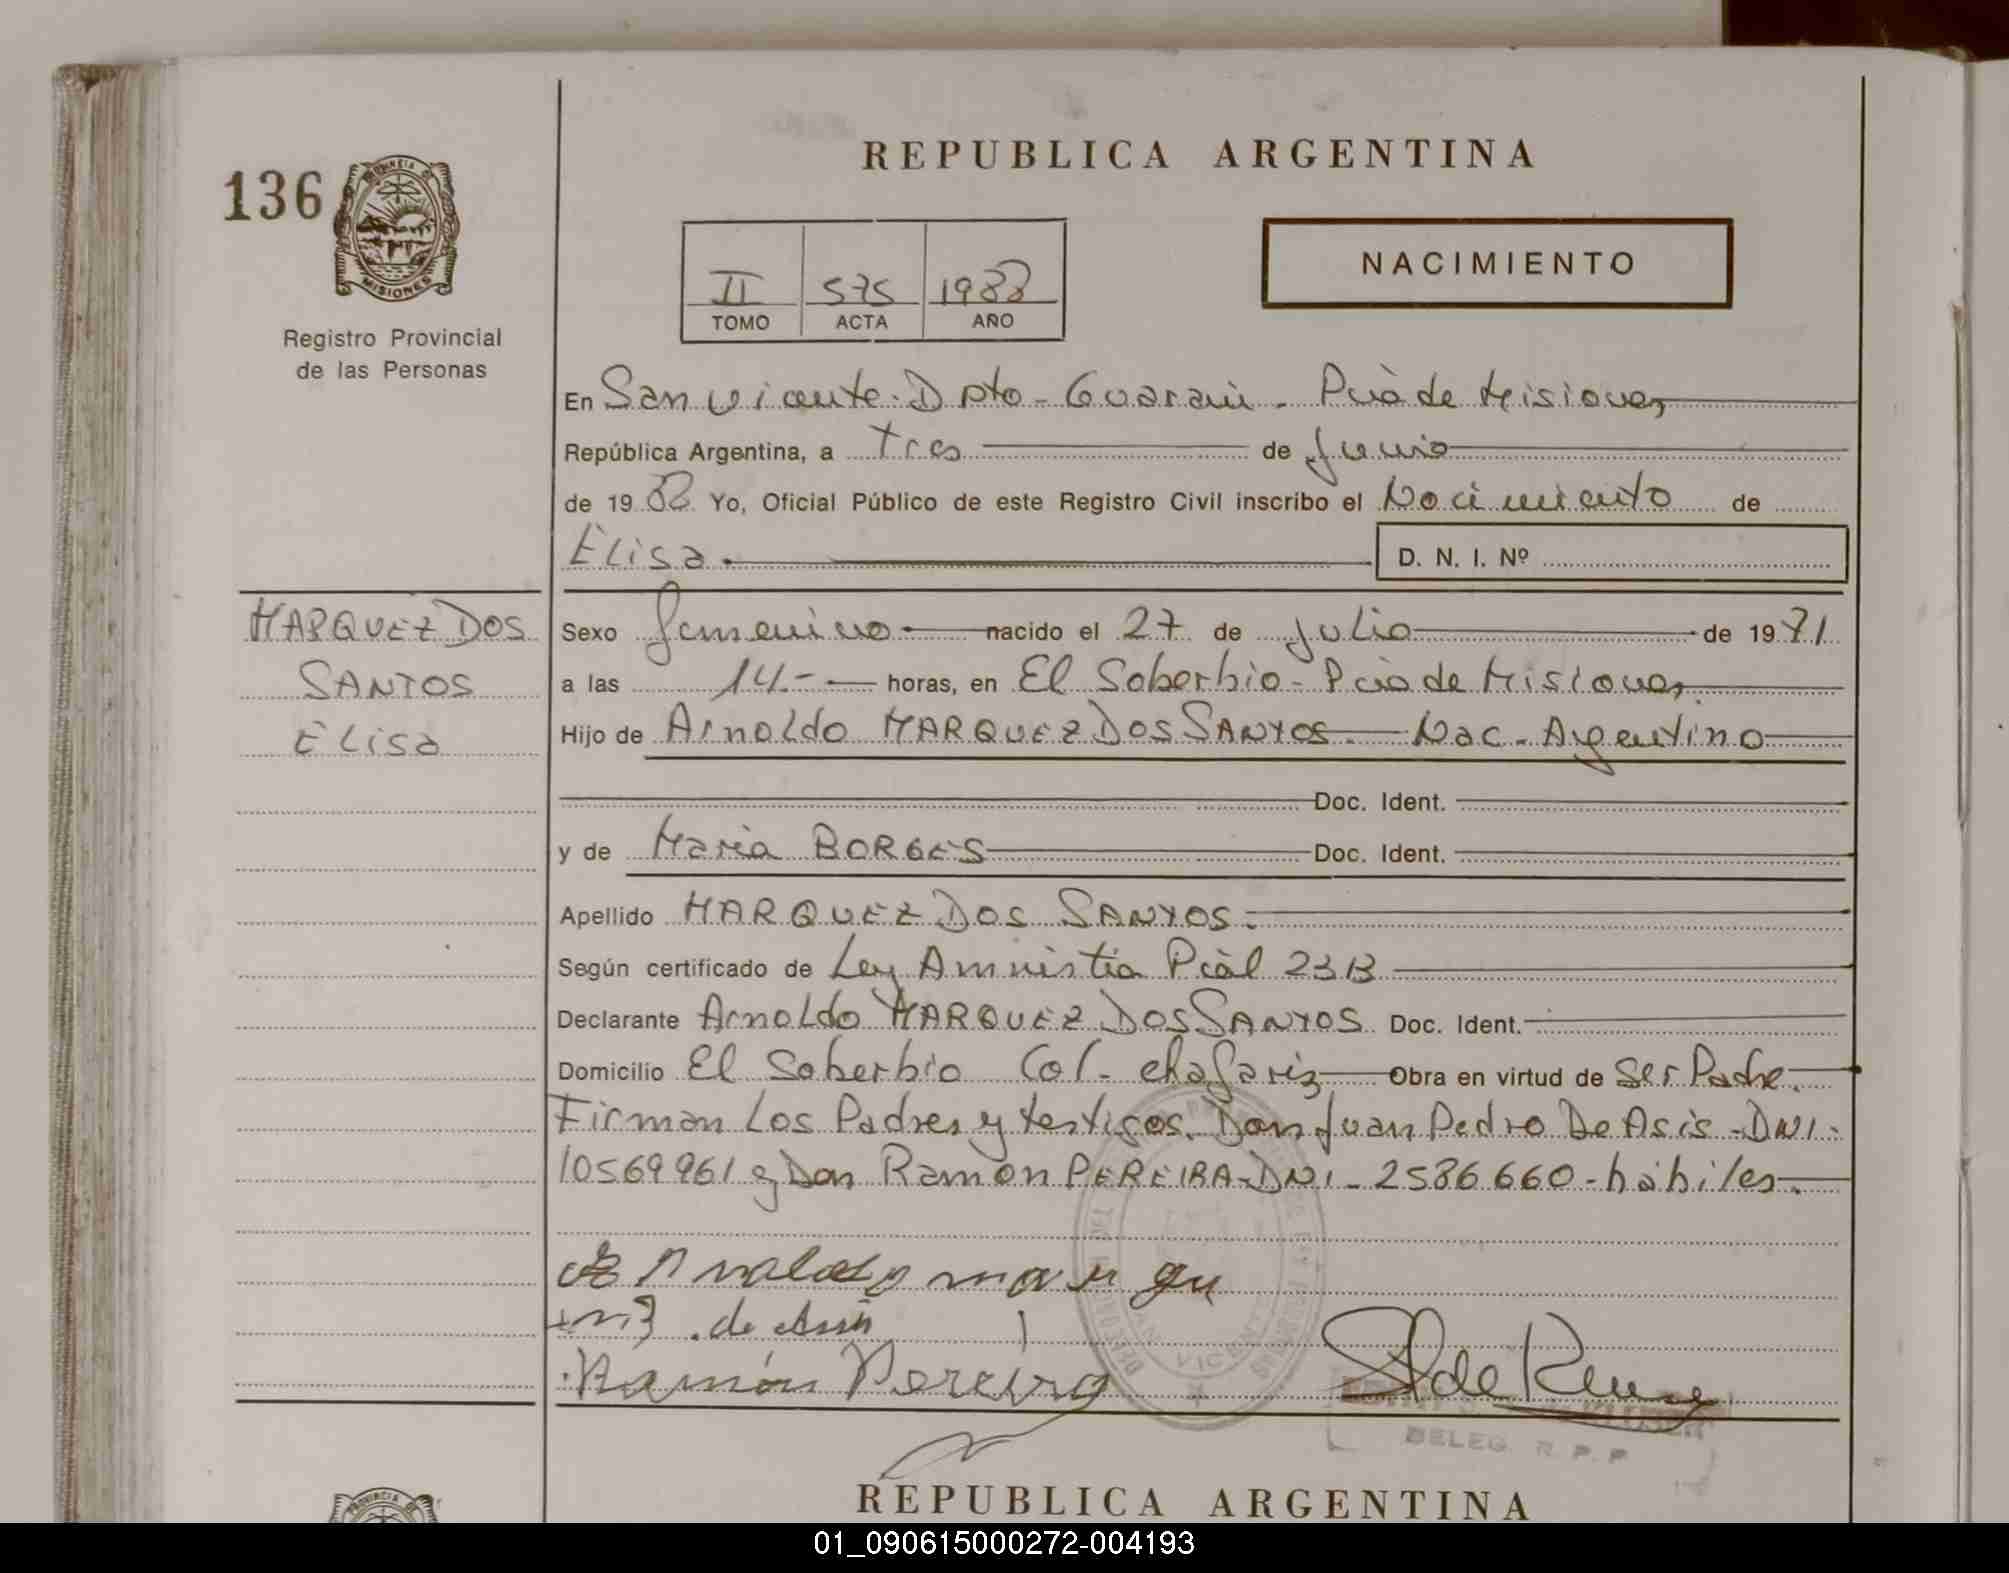 REPUBLICA ARGENTINA
136
PROVINCIA DE
MISIONES
Registro Provincial
de las Personas
II 575 1988
TOMO ACTA AÑO
NACIMIENTO
En San Vicente - Dpto - Guarani - Pcia de Misiones
República Argentina, a tres de Junio
de 19 88 Yo, Oficial Público de este Registro Civil inscribo el Nacimiento de
Elisa. D. N. I. Nº
MARQUEZ DOS
SANTOS
Elisa
Sexo femenino nacido el 27 de Julio de 19 71
a las 14.- horas, en El Soberbio - Pcia de Misiones
Hijo de Arnoldo MARQUEZ DOS SANTOS. Nac - Argentino
Doc. Ident.
y de Maria BORGES Doc. Ident.
Apellido MARQUEZ DOS SANTOS.
Según certificado de Ley Amnistia Pcial 2313
Declarante Arnoldo MARQUEZ DOS SANTOS Doc. Ident.
Domicilio El Soberbio Col - chafariz Obra en virtud de Ser Padre.
Firman Los Padres y testigos. Don Juan Pedro De Asis - DNI -
10569961 y Don Ramon PEREIRA - DNI - 2586660 - hábiles.
de Asis
Ramón Pereira
VICENTE
DELEG. R. P. P
REPUBLICA ARGENTINA
PROVINCIA DE
01_090615000272-004193